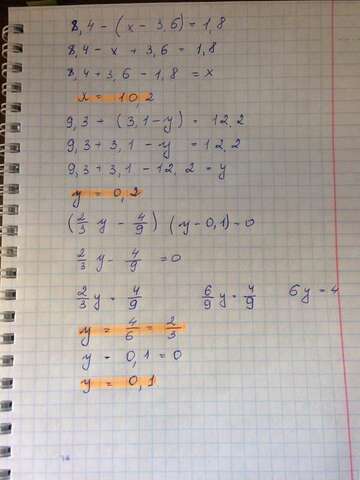 8,4 - (x - 3,6) = 1,8
8,4 - x + 3,6 = 1,8
8,4 + 3,6 - 1,8 = x
x = 10,2
9,3 + (3,1 - y) = 12,2
9,3 + 3,1 - y = 12,2
9,3 + 3,1 - 12,2 = y
y = 0,2
(2/3 y - 4/9) (y - 0,1) = 0
2/3 y - 4/9 = 0
2/3 y = 4/9 6/9 y = 4/9 6y = 4
y = 4/6 = 2/3
y - 0,1 = 0
y = 0,1